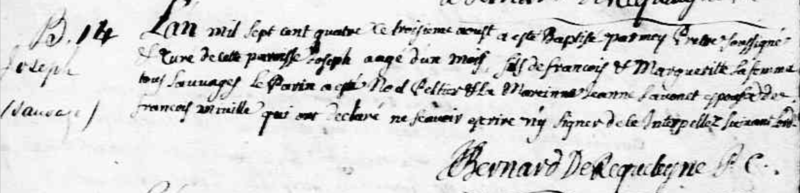 B. 14
Joseph
(sauvage)
Lan mil sept cent quatre le troisieme aoust a esté Baptisé par moy Prêtre soussigné
& Curé de cette paroisse Joseph aagé d'un mois, fils de francois & Marguerite sa femme
tous sauvages le Parin a esté Noel Peltier & la Mareinne Jeanne Savonet espouse de
francois miville qui ont declaré ne scavoir escrire ny signer de ce Interpellez suivant lord
Bernard DeRequeleyne P. C.